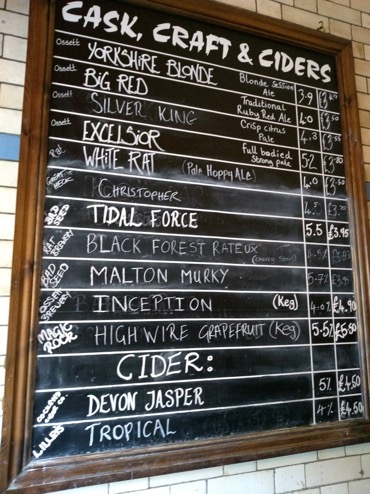 CASK, CRAFT & CIDERS
Ossett YORKSHIRE BLONDE Blonde Session Ale 3.9
Ossett BIG RED Traditional Ruby Red Ale 4.0
Ossett SILVER KING Crisp citrus Pale 4.3
Ossett EXCELSIOR Full bodied Strong pale 5.2
Rat WHITE RAT (Pale Hoppy Ale) 4.0
CHRISTOPHER
BAD SEED TIDAL FORCE 5.5 £3.95
RAT BREWERY BLACK FOREST RATEUX
BAD SEED MALTON MURKY
OSSETT BREWERY INCEPTION (Keg) £4.90
MAGIC ROCK HIGH WIRE GRAPEFRUIT (Keg) 5.5% £5.50
CIDER:
DEVON JASPER 5% £4.50
LILLEYS TROPICAL 4% £4.50